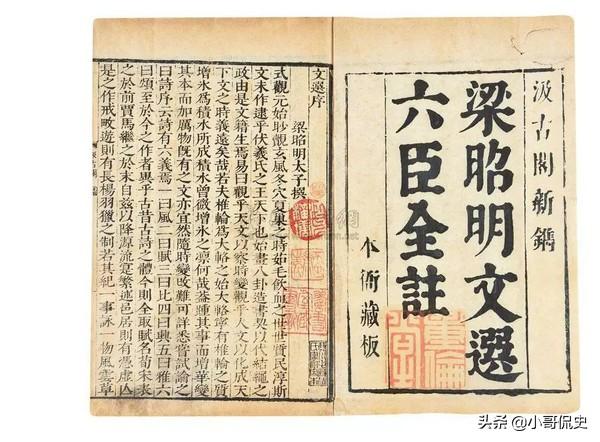 汲古閣新鐫
梁昭明文選
六臣全註
本衙藏板
文選序
梁昭明太子撰
式觀元始眇覿玄風冬穴夏巢之時茹毛飲血之世世質民淳斯
文未作逮乎伏羲氏之王天下也始畫八卦造書契以代結繩之
政由是文籍生焉易曰觀乎天文以察時變觀乎人文以化成天
下文之時義遠矣哉若夫椎輪爲大輅之始大輅寧有椎輪之質
增冰爲積水所成積水曾微增冰之凛何哉葢踵其事而增華變
其本而加厲物旣有之文亦宜然隨時變改難可詳悉嘗試論之
曰詩序云詩有六義焉一曰風二曰賦三曰比四曰興五曰雅六
曰頌至於今之作者異乎古昔古詩之體今則全取賦名荀宋表
之於前賈馬繼之於末自茲以降源流寔繁述邑居則有憑虛亡
是之作戒畋遊則有長楊羽獵之制若其紀一事詠一物風雲草
头条 @小哥侃史